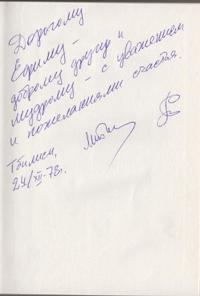 Дорогому
Ефиму -
доброму другу и
мудрому - с уважением
и пожеланиями счастья.
Тбилиси,
24/XII-78г.